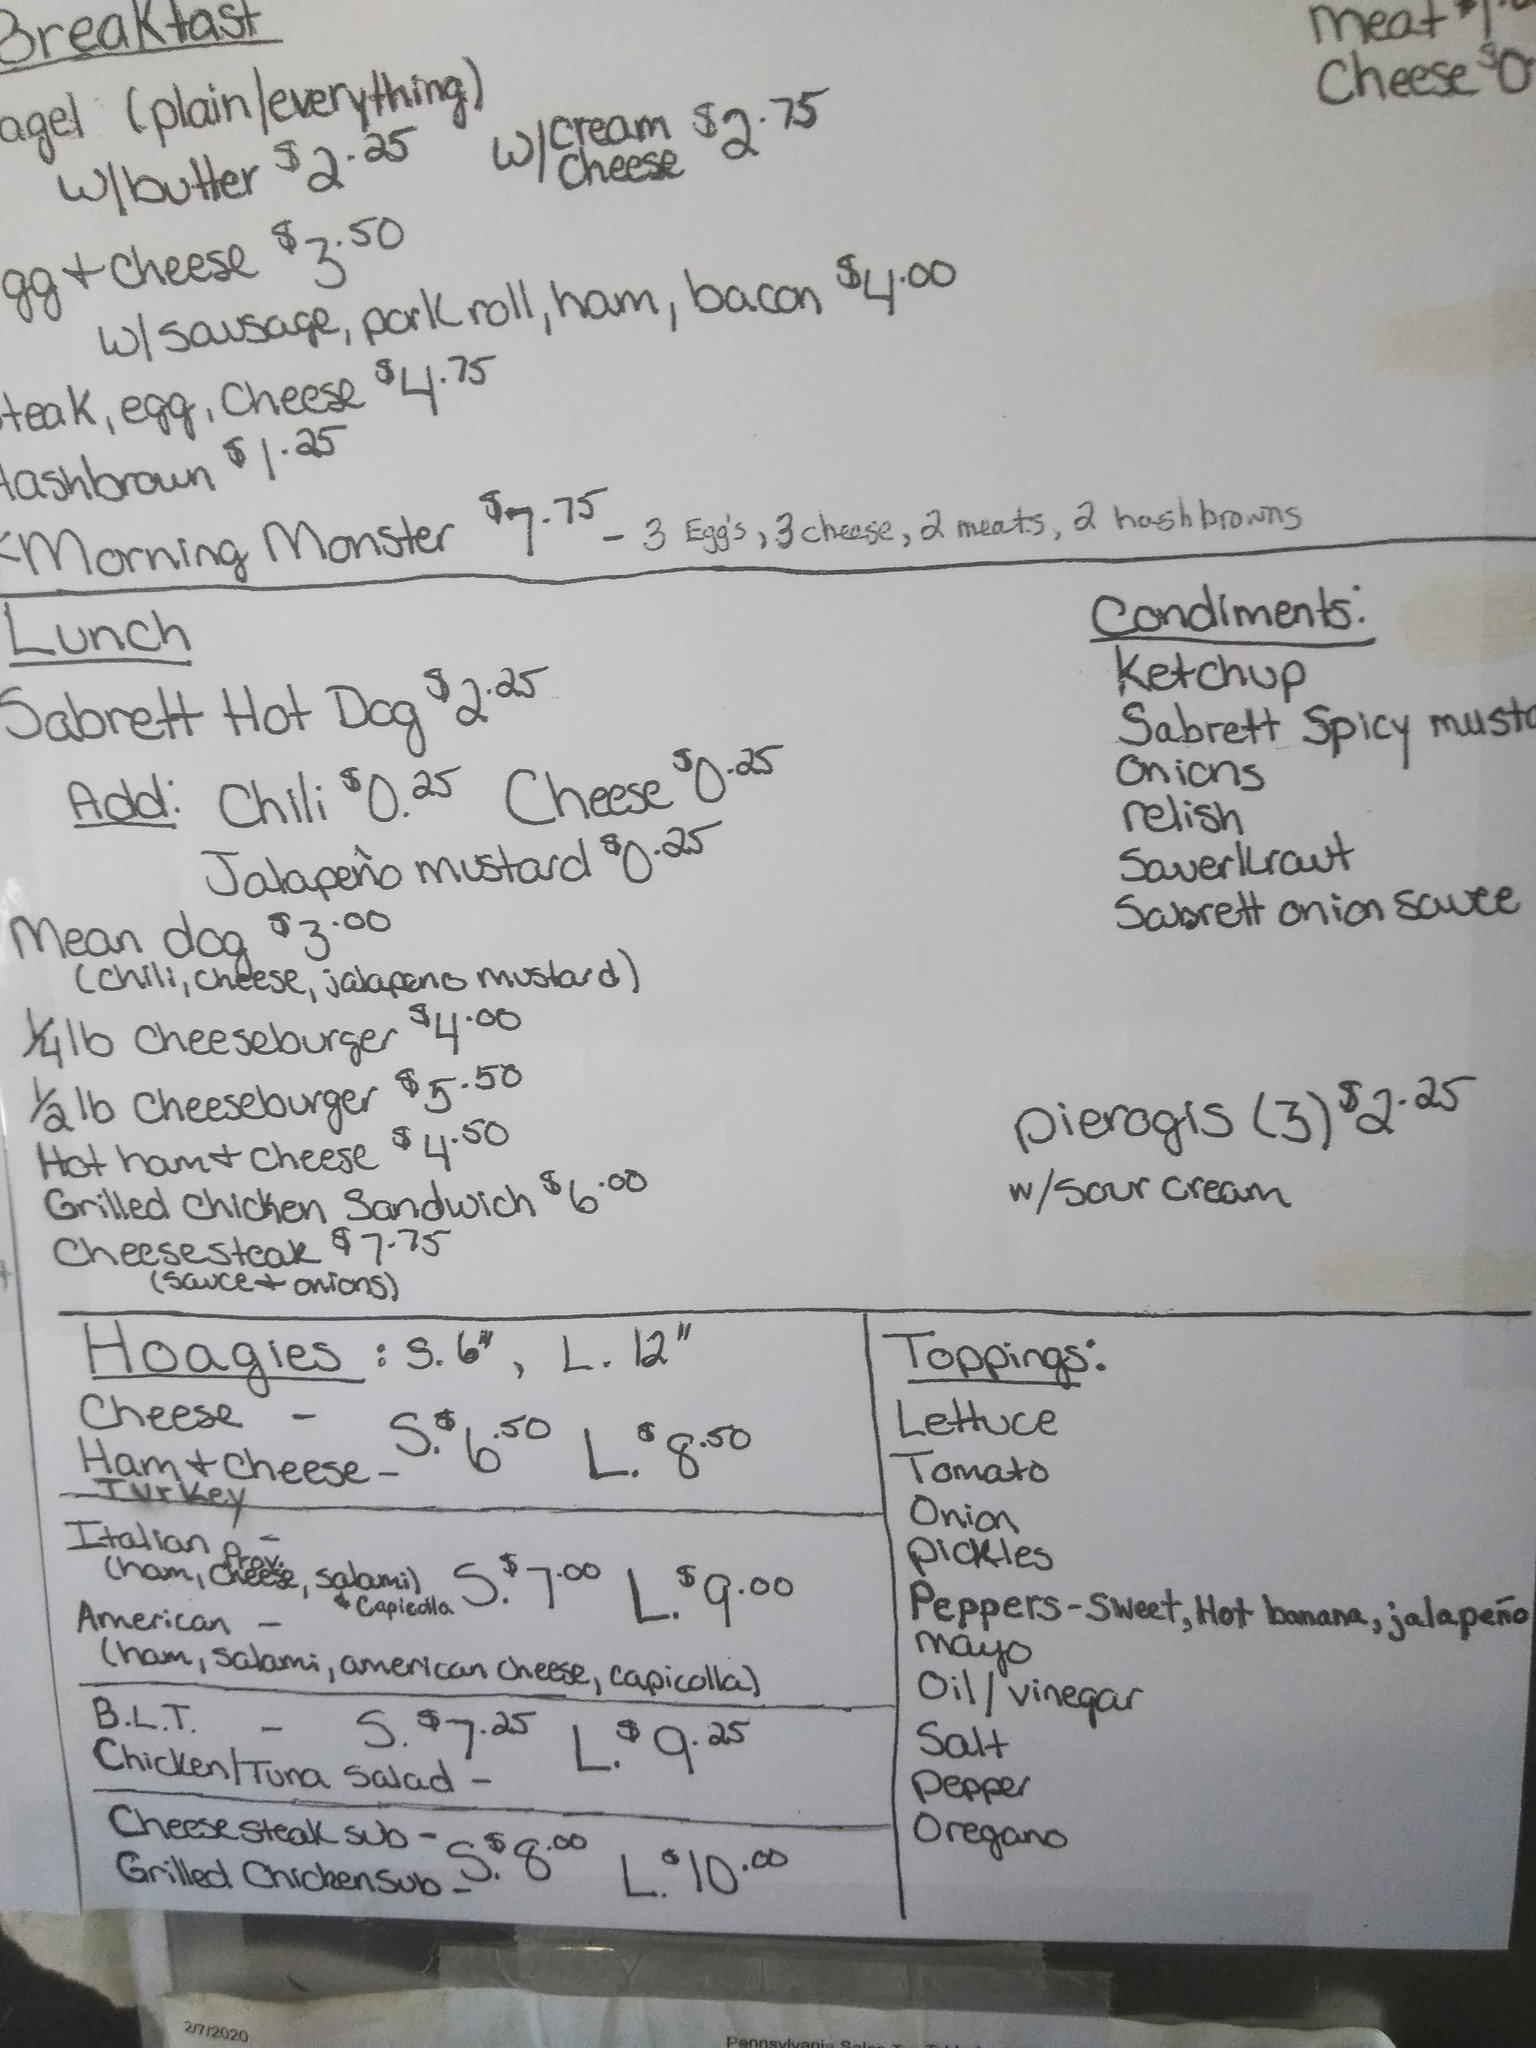 Breakfast
meat $1.
Cheese $0.
agel (plain/everything)
w/butter $2.25 w/cream cheese $2.75
gg + cheese $3.50
w/sausage, pork roll, ham, bacon $4.00
teak, egg, cheese $4.75
Hashbrown $1.25
Morning Monster $7.75 - 3 Egg's, 3 cheese, 2 meats, 2 hashbrowns
Lunch
Sabrett Hot Dog $2.25
Add: Chili $0.25 Cheese $0.25
Jalapeño mustard $0.25
Mean dog $3.00
(chili, cheese, jalapeno mustard)
1/4 lb cheeseburger $4.00
1/2 lb cheeseburger $5.50
Hot ham + cheese $4.50
Grilled chicken Sandwich $6.00
Cheesesteak $7.75
(sauce + onions)
Condiments:
Ketchup
Sabrett Spicy musta
onions
relish
Sauerkraut
Sabrett onion sauce
pierogis (3) $2.25
w/sour cream
Hoagies: S. 6", L. 12"
Cheese -
Ham + cheese - S. $6.50 L. $8.50
Turkey
Italian -
(ham, Prov. cheese, salami) S. $7.00 L. $9.00
+ Capicolla
American -
(ham, salami, american cheese, capicolla)
B.L.T. - S. $7.25 L. $9.25
Chicken/Tuna Salad -
Cheesesteak sub -
Grilled Chicken sub - S. $8.00 L. $10.00
Toppings:
Lettuce
Tomato
Onion
pickles
Peppers - Sweet, Hot banana, jalapeño
mayo
Oil/vinegar
Salt
pepper
Oregano
2/7/2020
Pennsylvania Sales